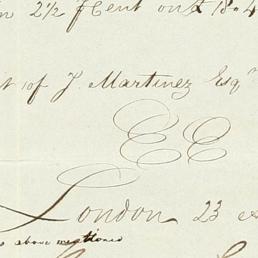 2½ ꝑCent out
of J. Martinez Esqʳ
EC
London 23
above mentioned